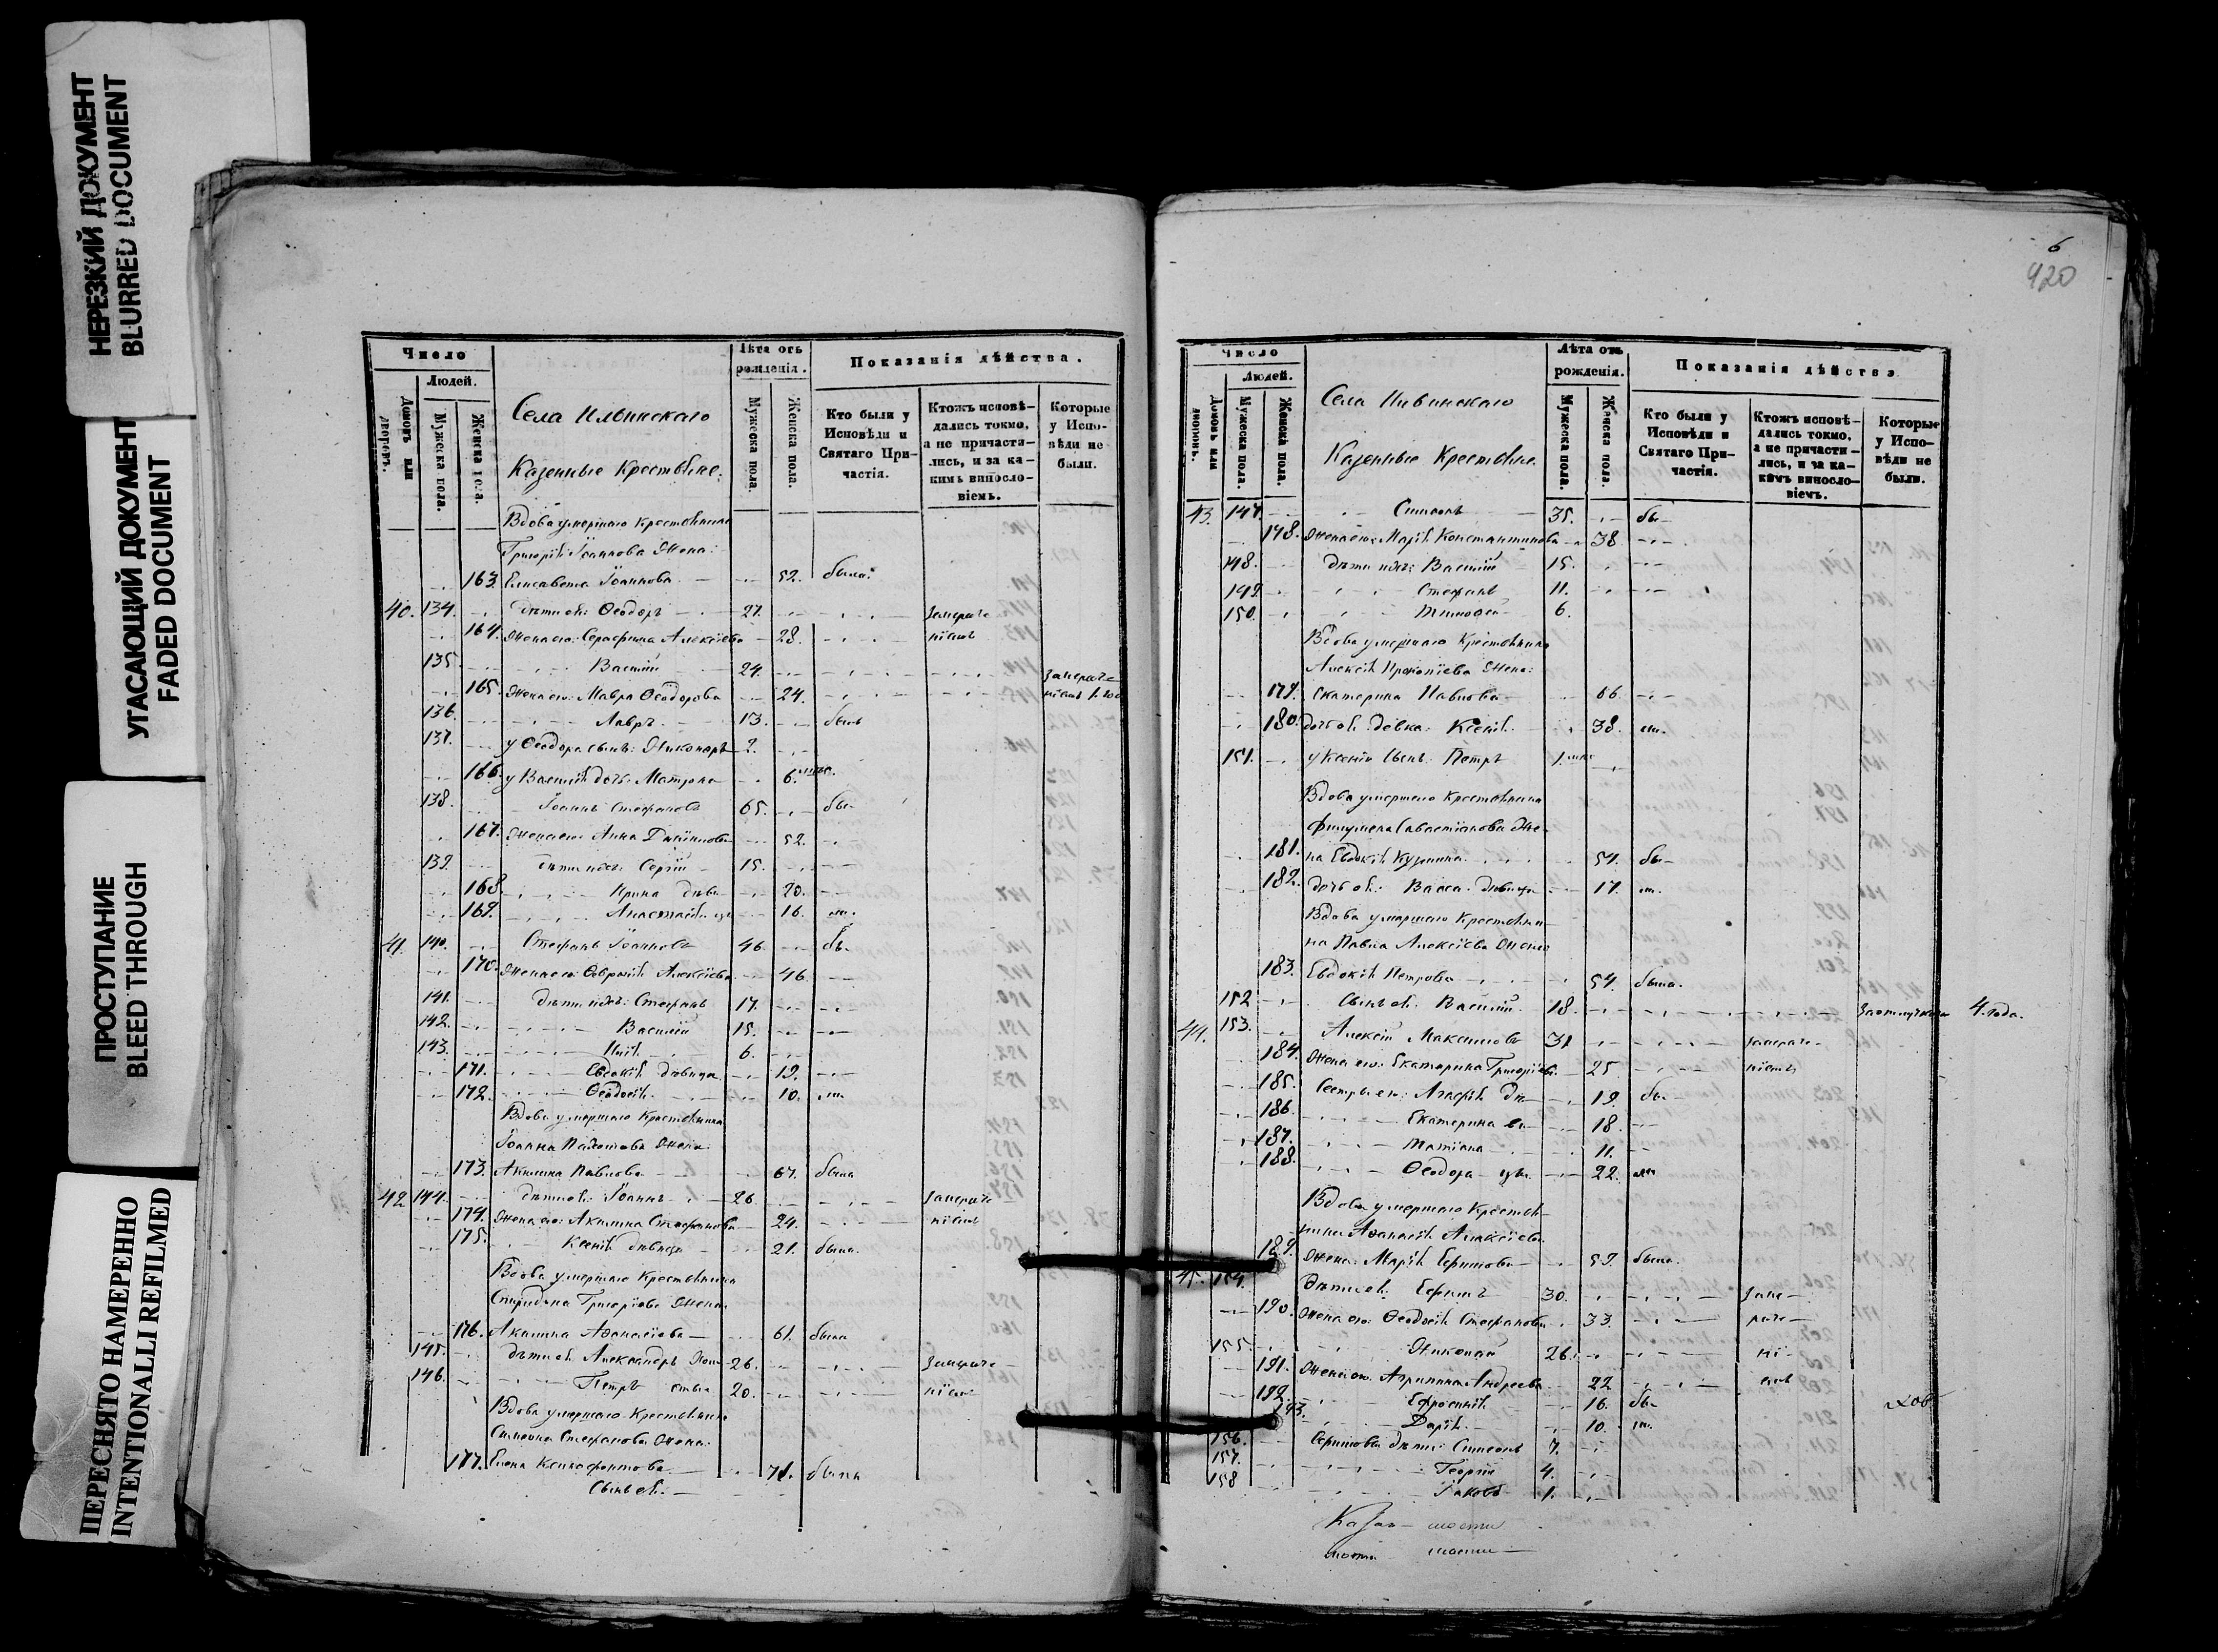 НЕРЕЗКИЙ ДОКУМЕНТ
BLURRED DOCUMENT
УГАСАЮЩИЙ ДОКУМЕНТ
FADED DOCUMENT
ПРОСТУПАНИЕ
BLEED THROUGH
ПЕРЕСНЯТО НАМЕРЕННО
INTENTIONALLI REFILMED
Число
Людей.
Домовъ или дворовъ.
Мужеска пола.
Женска пола.
Села Ильинскаго
Казенные Крестьяне.
Лѣта отъ рожденія.
Мужеска пола.
Женска пола.
Показанія дѣйства.
Кто были у Исповѣди и Святаго Причастія.
Ктожъ исповѣдались токмо, а не причастились, и за какимъ винословіемъ.
Которые у Исповѣди не были.
Вдова умершаго Крестьянина
Григорія Іоаннова Жена:
163. Елисавета Іоаннова 52. была
40. 134. Дѣти ея: Ѳеодоръ 27.
164. Жена его: Серафима Алексіева 28.
135. Василій 24.
165. Жена его: Мавра Ѳеодорова 24.
136. Лавръ 13. былъ
137. у Ѳеодора сынъ: Никоноръ 2.
166. у Василія дочь: Матрона 6.
138. Іоаннъ Стефановъ 65. бы
167. Жена его: Анна 52.
139. Дѣти ихъ: Сергій 15.
168. Ирина 20.
169. Анастасія 16. ли.
41. 140. Стефанъ Іоанновъ 46. бы
170. Жена его: Алексіева 46.
141. Дѣти ихъ: Стефанъ 17.
142. Василій 15.
143. 6.
171. Евдокія дѣвица 19.
172. Ѳеодосія 10. ли
Вдова умершаго Крестьянина
Іоанна Жена
173. Акилина Павлова 67. была
42 144. Дѣти ея: Іоаннъ 26
174. Жена его: Акилина Стефанова 24.
175. Ксенія дѣвица 21. была.
Вдова умершаго Крестьянина
Спиридона Григоріева Жена
176. Акилина Аѳанасіева 61. была
145. Дѣти ея Александръ 26.
146. Петръ 20.
Вдова умершаго Крестьянина
Симеона Стефанова Жена:
177. Елена Ксенофонтова 71. была
Сынъ ея.
6
420
Число
Людей.
Домовъ или дворовъ.
Мужеска пола.
Женска пола.
Села Ильинскаго
Казенные Крестьяне.
Лѣта отъ рожденія.
Мужеска пола.
Женска пола.
Показанія дѣйства
Кто были у Исповѣди и Святаго Причастія.
Ктожъ исповѣдались токмо, а не причастились, и за какимъ винословіемъ.
Которые у Исповѣди не были.
43. 147. Симеонъ 35. бы
178. Жена его: Марія Константинова 38
148. Дѣти ихъ: Василій 15.
149. Стефанъ 11.
150. Тимоѳей 6.
Вдова умершаго Крестьянина
Алексія Прокопіева Жена:
179. Екатерина Павлова 66.
180. дочь ея: дѣвка: Ксенія 38. ли.
151. у Ксеніи Сынъ: Петръ 1.
Вдова умершаго Крестьянина
Филимона Севастіанова Же-
181. на Евдокія Кузмина 54. бы
182. дочь ея: Васса дѣвица 17. ли.
Вдова умершаго Крестьяни-
на Павла Алексіева Жена
183. Евдокія Петрова 54. была.
152. Сынъ ея: Василій 18. 4. года.
44. 153. Алексій Максимовъ 31
184. Жена его: Екатерина Григоріева 25
185. Сестры его: Агаѳія 19. бы
186. Екатерина 18.
187. Татіана 11.
188. Ѳеодора 22. ли
Вдова умершаго Крестья-
нина Аѳанасія Алексіева
189. Жена: Марія Ефимова 59. была.
45. 154. Дѣти ея: Ефимъ 30.
190. Жена его: Ѳеодосія Стефанова 33.
155. Николай 26.
191. Жена его: Агрипина Андреева 22
192. Ефросинія 16. бы
193. Дарія 10. ли.
156. Ефимовы дѣти: Симеонъ 7.
157. Георгій 4.
158 Іаковъ 1.